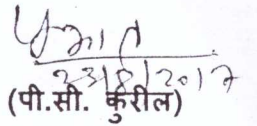 23/8/2017
(पी.सी. कुरील)